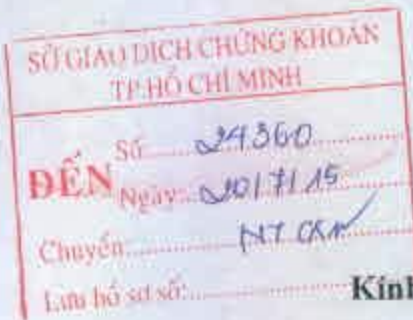 SỞ GIAO DỊCH CHỨNG KHOÁN
TP.HỒ CHÍ MINH
ĐẾN
Số: 24360
Ngày: 20/7/15
Chuyển: NY
Lưu hồ sơ số:
Kính